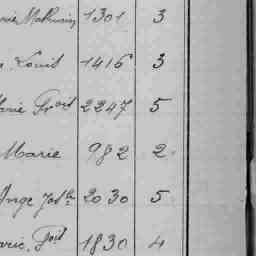 Mathurin 1301 3
Louis 1416 3
Marie Fr^ois 2247 5
Marie 982 2
Ange Jos^h 2030 5
1830 4